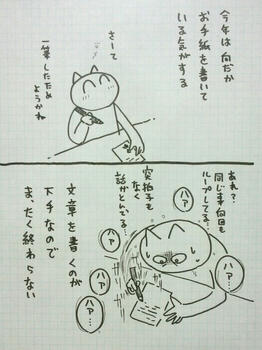 今年は何だか
お手紙を書いて
いる気がする
さーて
一筆したため
ようかね
あれ?
同じ事何回も
ループしてる…
突拍子も
なく
話がとんでる…
ハァ
ハァ…
ハァ…
ハァ…
文章を書くのが
下手なので
まったく終わらない